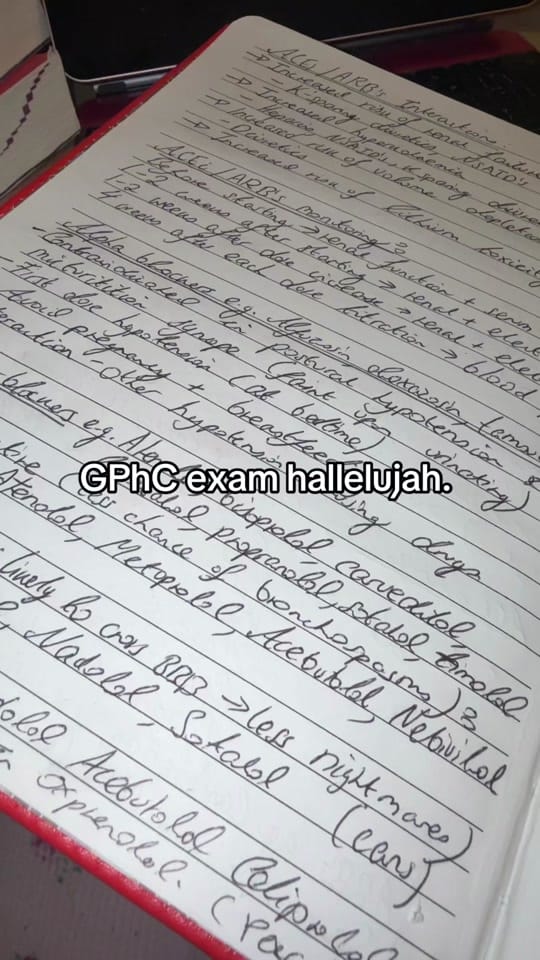 ACEi/ARB's Interactions:
Increased risk of renal failure
K sparing diuretics, NSAID's
Increased hyperkalaemia
NSAID's, K sparing diuretics
Increased risk of volume depletion
Diuretics
Increased risk of lithium toxicity
ACEi/ARB's monitoring:
Before starting → renal function + serum
1-2 weeks after starting → renal + elect
2 weeks after dose increase → renal + elec
after each dose titration → blood
Alpha blockers eg. doxazosin, tamsu
Contraindicated in postural hypotension &
micturition syncope (faint upon urinating)
First dose hypotension (at bedtime)
Avoid pregnancy + breastfeeding
other hypotensive drugs
blockers eg.
GPhC exam hallelujah.
bisoprolol, carvedilol,
propranolol, sotalol, timolol
(less chance of bronchospasms) 3
Atenolol, Metoprolol, Acebutolol, Nebivilol
likely to cross BBB → less nightmares)
Nadolol, Sotalol (CANS)
Acebutolol Celiprolol
oxprenolol.